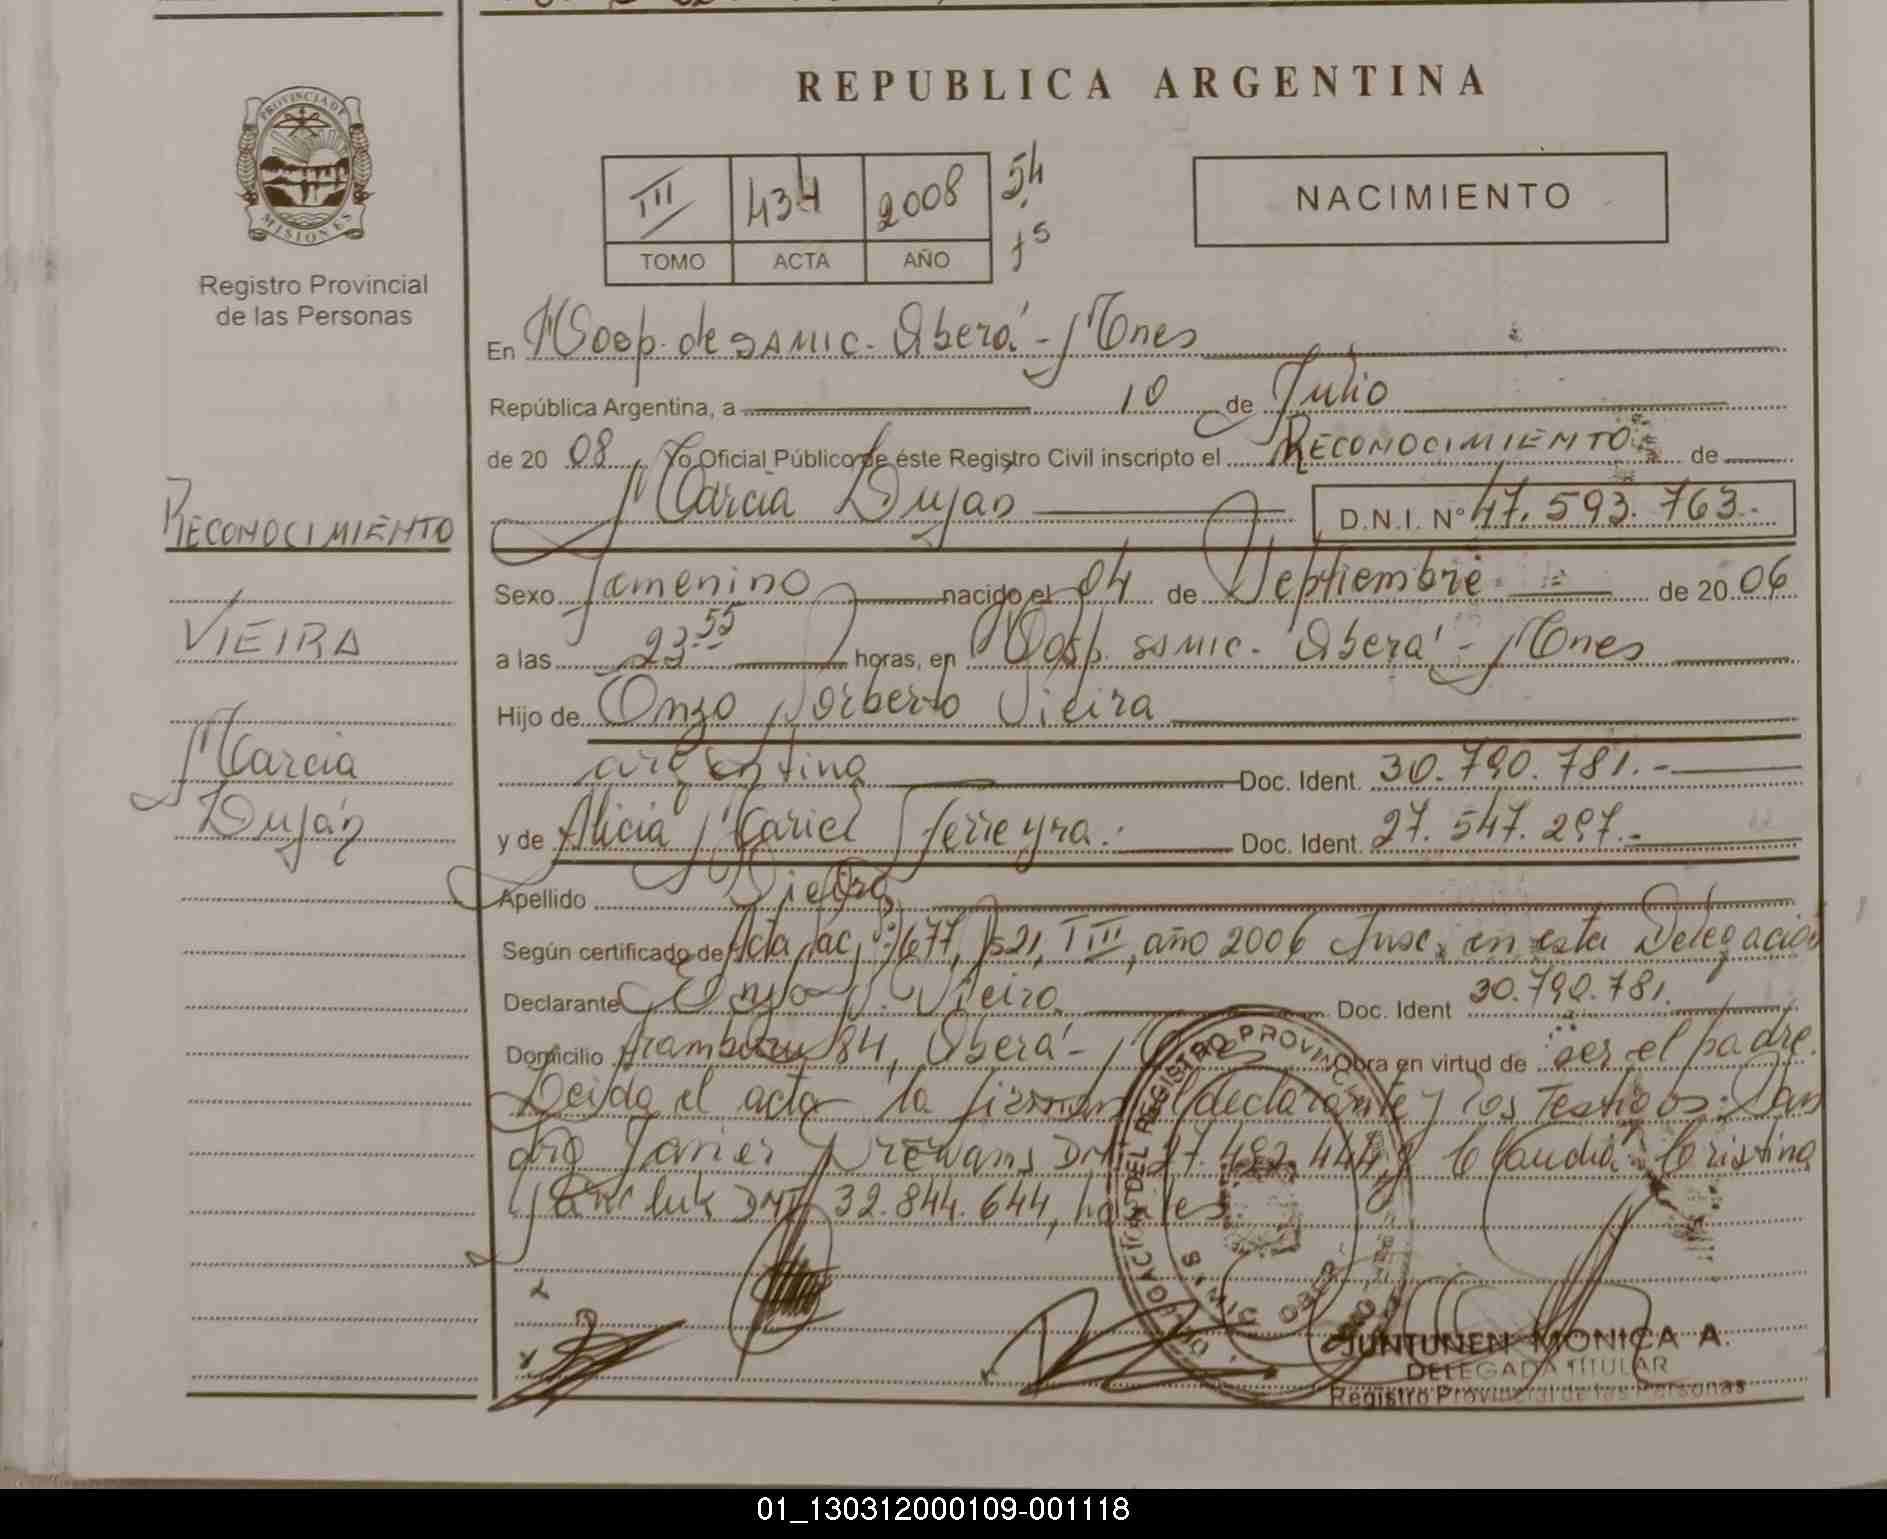 REPUBLICA ARGENTINA
PROVINCIA DE
MISIONES
Registro Provincial
de las Personas
III 434 2008 54
TOMO ACTA AÑO
NACIMIENTO
En Hosp. de SAMIC. Oberá - Mnes
República Argentina, a 10 de Julio
de 20 08 Yo Oficial Público de éste Registro Civil inscripto el RECONOCIMIENTO de
Marcia Luján D.N.I. Nº 47.593.763.-
Sexo femenino nacido el 04 de Septiembre de 20 06
a las 23 55 horas, en Hosp. SAMIC - Oberá - Mnes
Hijo de Enzo Norberto Vieira
argentina Doc. Ident. 30.790.781.-
y de Alicia Mariel Ferreyra. Doc. Ident. 27.547.297.-
Apellido Vieira
Según certificado de Acta Nac, 1677, 521, TIII, año 2006 Insc. en esta Delegación
Declarante Enzo N. Vieira Doc. Ident 30.790.781.
Domicilio Aramburu 84, Oberá - Mnes Obra en virtud de ser el padre.
Leida el acta la firman el declarante y los Testigos: San
dro Javier DNI 27.482.444 y Claudia Cristina
DNI 32.844.644, hábiles.
RECONOCIMIENTO
VIEIRA
Marcia
Luján
DELEGACION DEL REGISTRO PROVINCIAL
OBERA
JUNTUNEN MONICA A.
DELEGADA TITULAR
Registro Provincial de las Personas
01_130312000109-001118